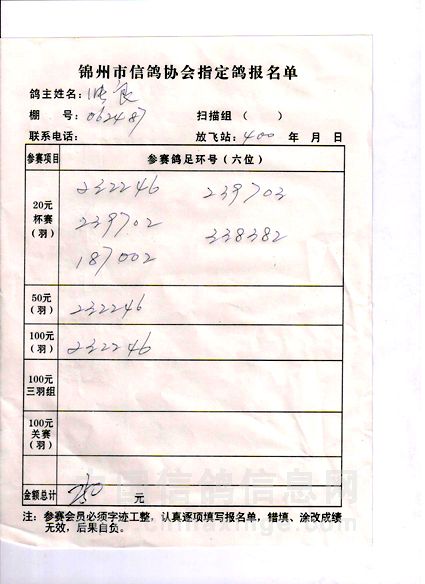 锦州市信鸽协会指定鸽报名单
鸽主姓名：洪良
棚 号：062487 扫描组（ ）
联系电话： 放飞站：400 年 月 日
参赛项目 参赛鸽足环号（六位）
20元
杯赛
（羽）
232246 239703
239702 338382
187002
50元
（羽）
232246
100元
（羽）
232246
100元
三羽组
100元
关赛
（羽）
金额总计 250 元
注：参赛会员必须字迹工整，认真逐项填写报名单，错填、涂改成绩
无效，后果自负。
中国信鸽信息网